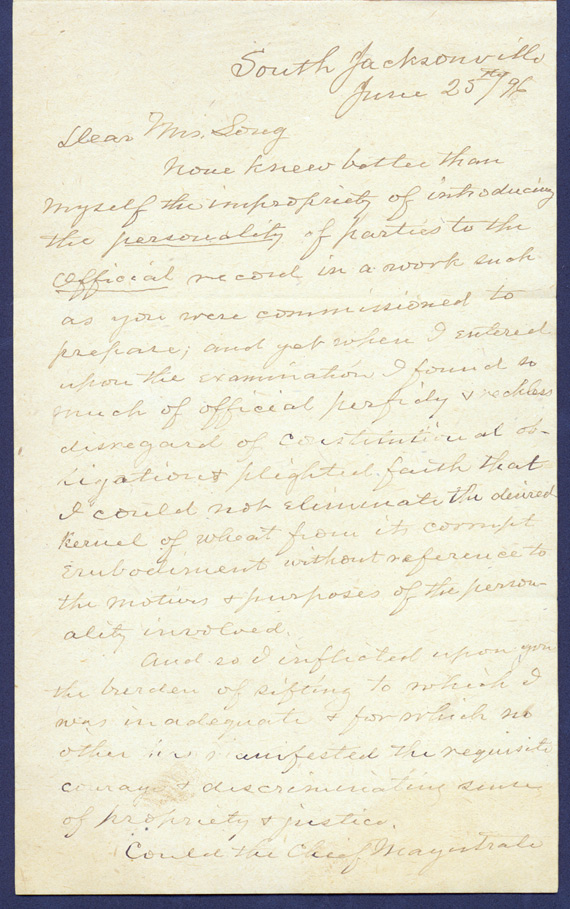 South Jacksonville
June 25th/96
Dear Mrs. Long
None knew better than
myself the impropriety of introducing
the personality of parties to the
Official record in a work such
as you were commissioned to
prepare; and yet when I entered
upon the examination I found so
much of official perfidy & reckless
disregard of Constitutional ob-
ligation & plighted faith that
I could not eliminate the desired
kernel of wheat from its corrupt
embodiment without reference to
the motives & purposes of the person-
ality involved.
And so I inflicted upon you
the burden of sifting to which I
was inadequate & for which no
other manifested the requisite
courage & discriminating sense
of propriety & justice.
Could the Chief Magistrate